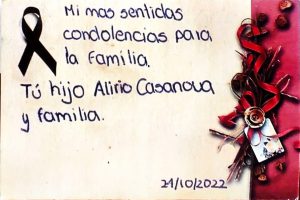 Mi mas sentidas
condolencias para
la familia.
Tú hijo Alirio Casanova
y familia.
21/10/2022